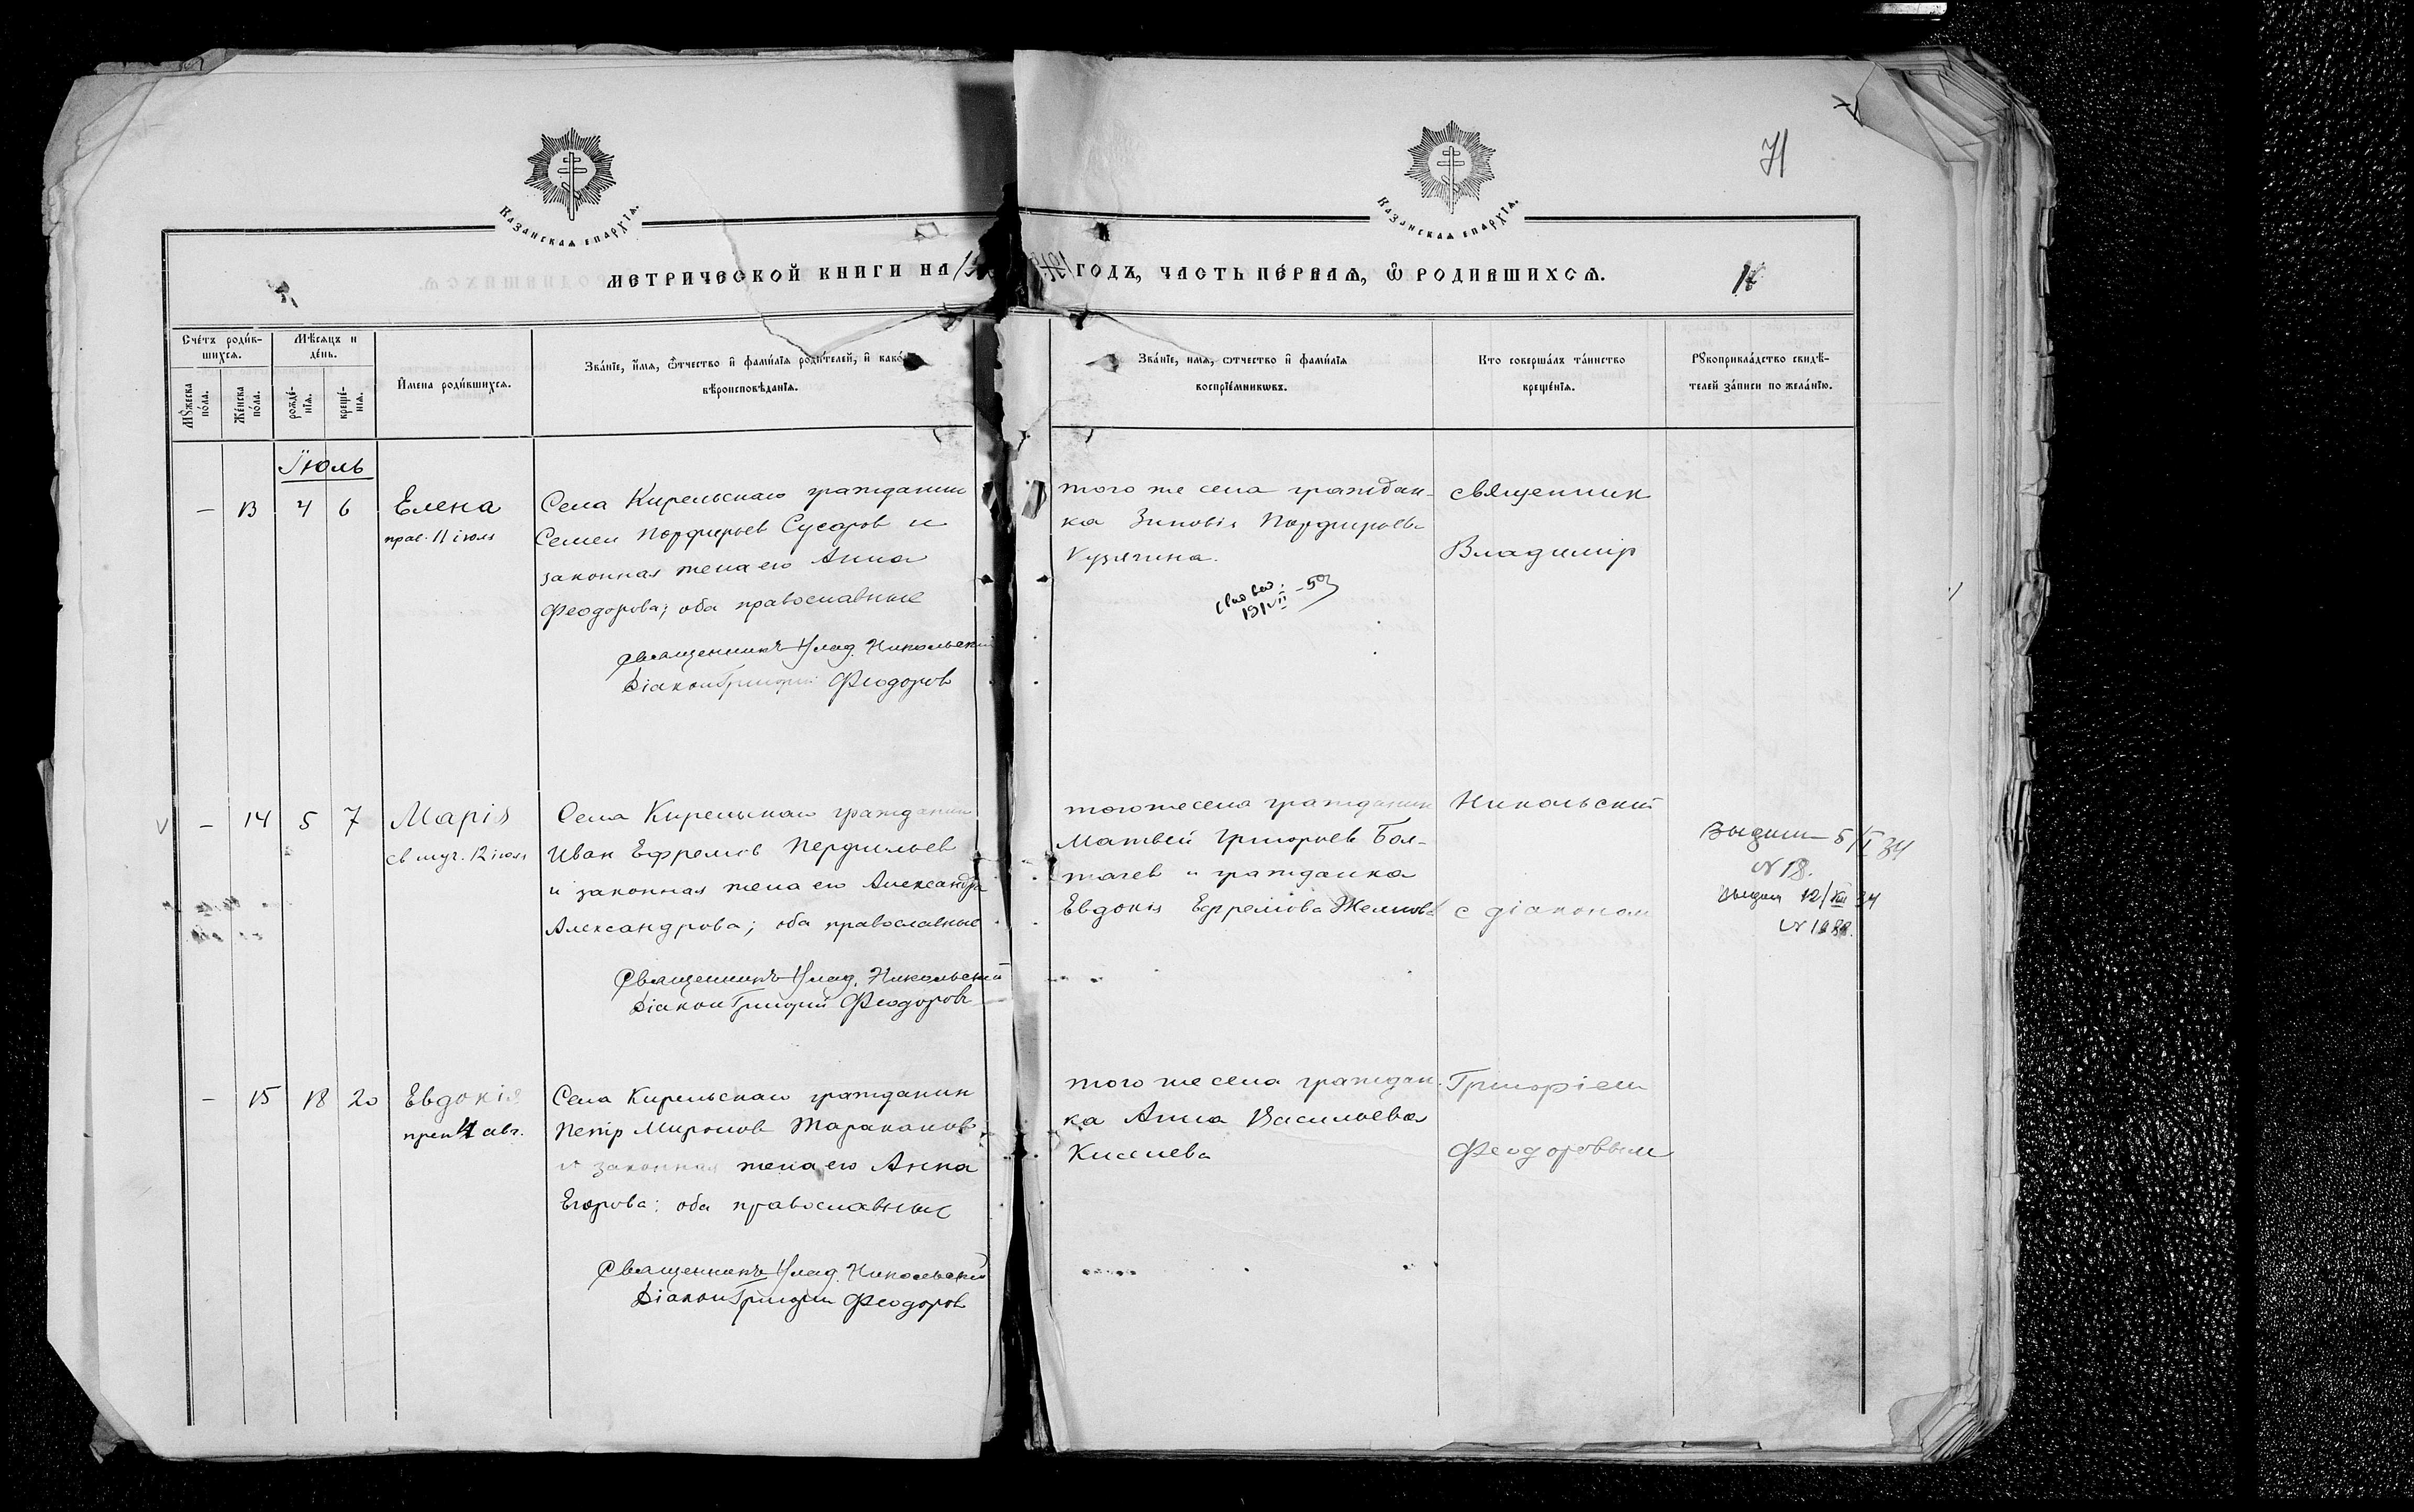 71
Казанская епархїа.
Казанская епархїа.
метрической книги на
годъ, часть пе́рваѧ, ѡ҆ родившихсѧ.
Счётъ роди́в-
шихсѧ.
Мѣ́сѧцъ и
де́нь.
Мꙋ́жеска
по́ла.
Же́нска
по́ла.
рожде́-
нїѧ.
креще́-
нїѧ.
И҆мена роди́вшихсѧ.
Зва́нїе, и҆́мѧ, ѻ҆́тчество и҆ фами́лїѧ роди́телей, и҆ како́
вѣроисповѣ́данїѧ.
Зва́нїе, имѧ, ѻтчество и҆ фами́лїѧ
воспрїе́мникѡвъ.
Кто соверша́лъ та́инство
креще́нїѧ.
Рꙋкоприкла́дство свидѣ́-
телей за́писи по жела́нїю.
Іюль
– 13 4 6
Елена
прав. 11 іюля
Села Кирельскаго гражданин
Семен Порфирьев Сусаров и
законная жена его Анна
Феодорова; оба православные
Священникъ Влад. Никольский
Діакон Григорий Феодоров
того же села граждан-
ка Зиновія Порфирьева
Кузягина.
священник
Владимір
– 14 5 7
Марія
св муч. 12 іюля
Села Кирельскаго гражданин
Иван Ефремов Перфильев
и законная жена его Александра
Александрова; оба православные
Священникъ Влад. Никольский
Діакон Григорий Феодоровъ
того же села гражданин
Матвей Григорьев Бол-
тачев и гражданка
Евдокія Ефремова
Никольский
с діаконом
5/I 34
№ 18.
12/XII 34
– 15 18 20
Евдокія
преп 4 авг.
Села Кирельскаго гражданин
Петр Миронов Тараканов
и законная жена его Анна
Егорова: оба православные
Священникъ Влад. Никольский
Діакон Григорий Феодоров
того же села граждан-
ка Анна Васильева
Киселева
Григоріем
Феодоровым